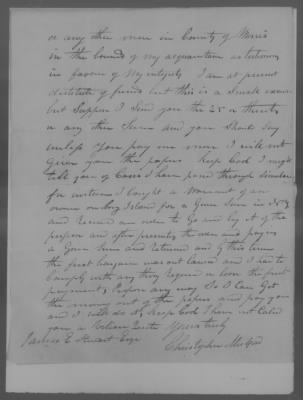 or any other men in County of Morris
in the bounds of my acquaintance as testimony
in favour of my integrity I am at present
destitute of funds but this is a small concern
but Suppose I Send you the 25 or thirty
or any other Sum and you Should Say
unless you pay me more I will not
give you the papers Keep Cool I might
tell you of Cases I have gone through Similar
for instance I bought a Warrant of an
woman on Long Island for a Given Sum in
and Received an order to Go and by it of the
person and after presenting the order and paying
a Given Sum and returned and by this time
the first bargain was not lawful and I had to
comply with any thing required or lose the first
payment, Propose any way So I Can Get
the money out of the papers and pay you
and I will do it, Keep Cool I have not Called
you a Yours truly
James E Stewart Esqr
Christopher